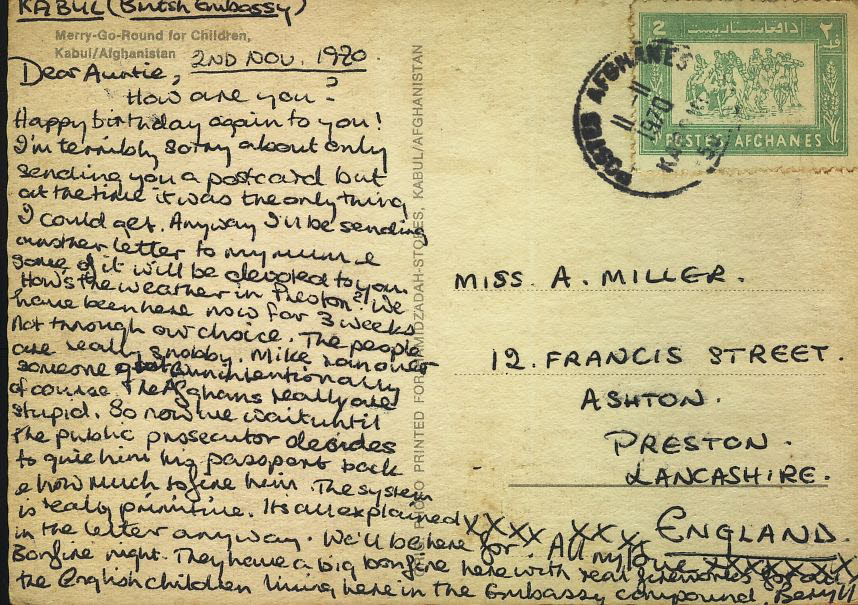 KABUL (British Embassy)
Merry-Go-Round for Children,
Kabul/Afghanistan
2ND NOV. 1970.
Dear Auntie,
How are you?
Happy birthday again to you!
I'm terribly sorry about only
sending you a postcard but
at the time it was the only thing
I could get. Anyway I'll be sending
another letter to my mum &
some of it will be devoted to you.
How's the weather in Preston? We
have been here now for 3 weeks
not through our choice. The people
are really snobby. Mike ran over
someone quite unintentionally
of course. The Afghans really are
stupid. So now we wait until
the public prosecutor decides
to give him his passport back
& how much to fine him. The system
is really primitive. Its all explained
in the letter anyway. We'll be here for
Bonfire night. They have a big bonfire here with real fireworks for all
the English children living here in the Embassy compound.
All my love
XXXX XXX XXXXXXX
Beryl
PHOTO PRINTED FOR HAMIDZADAH-STORES, KABUL/AFGHANISTAN
2
د افغانستان پست
۲
POSTES AFGHANES
POSTES AFGHANES
11-11
1970
MISS. A. MILLER.
12. FRANCIS STREET.
ASHTON.
PRESTON.
LANCASHIRE.
ENGLAND.